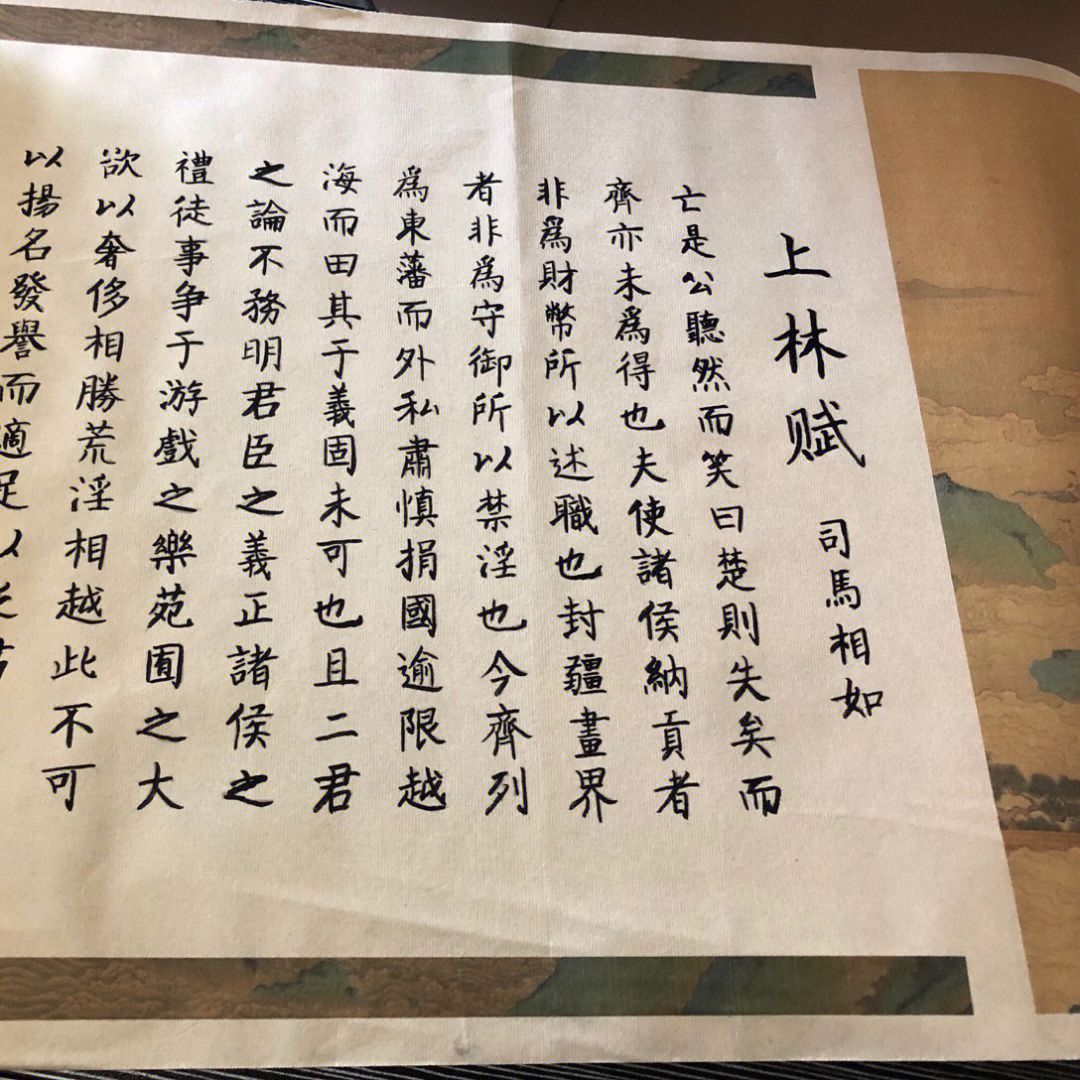 上林赋 司馬相如
亡是公聽然而笑曰楚則失矣而
齊亦未爲得也夫使諸侯納貢者
非爲財幣所以述職也封疆畫界
者非爲守御所以禁淫也今齊列
爲東藩而外私肅慎捐國逾限越
海而田其于義固未可也且二君
之論不務明君臣之義正諸侯之
禮徒事争于游戲之樂苑囿之大
欲以奢侈相勝荒淫相越此不可
以揚名發譽而適足以